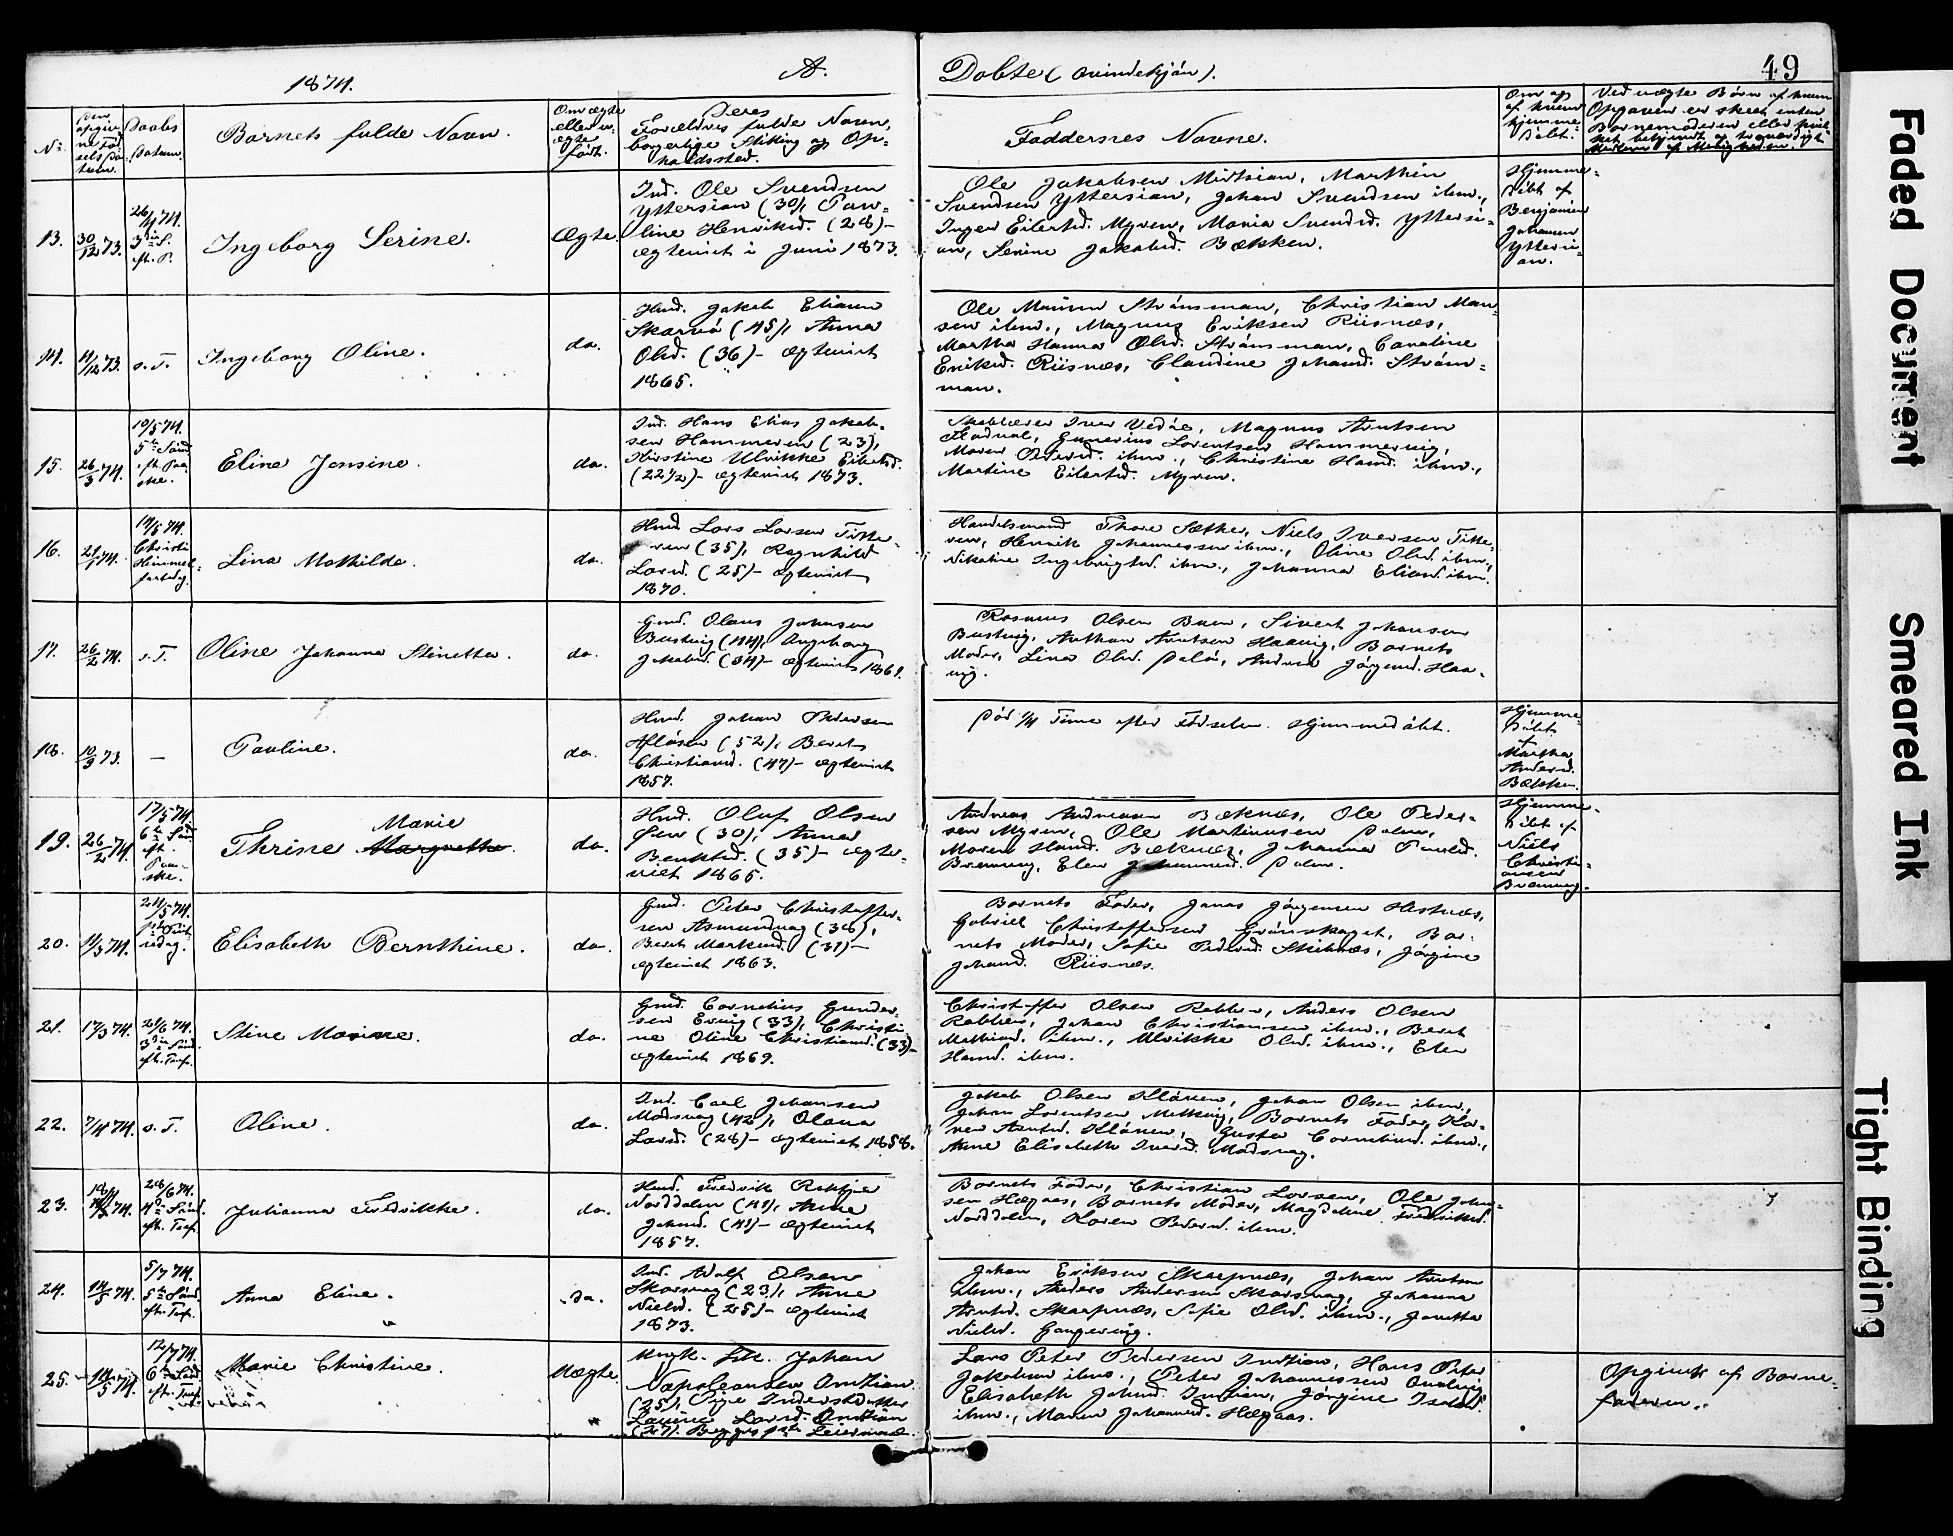 1874.
A.
Døbte (Qvindekjøn).
49
No.
Den opgivne Fødselsdatum.
Daabs Datum.
Barnets fulde Navn.
Om ægte eller uægte født.
Deres
Forældres fulde Navn,
borgerlige Stilling og Op-
holdssted.
Faddernes Navne.
Om og
af hvem
hjemme-
døbt.
13.
30/12 73.
26/4 74.
3die S.
eft. P.
Ingeborg Serine.
Ægte.
Ind. Ole Svendsen
Yttersian (30), Pau-
line Henriksd. (28) –
ægteviet i Juni 1873.
Ole Jakobsen Midtsian, Marthin
Svendsen Yttersian, Johan Svendsen ibm.,
Inger Eilertsd. Myren, Maria Svendsd. Yttersi-
an, Serine Jakobsd. Bækken.
Hjemme-
døbt af
Benjamin
Johansen
Yttersi-
an.
14.
11/12 73.
s. T.
Ingeborg Oline.
do.
Hmd. Jakob Eliasen
Skarvø (45), Anna
Olsd. (36) – ægteviet
1865.
Ole Monsen Strømsman, Christian Mon-
sen ibm., Magnus Eriksen Riisnæs,
Martha Hanna Olsd. Strømsman, Caroline
Eriksd. Riisnæs, Claudine Johansd. Strøms-
man.
15.
26/3 74.
10/5 74.
5te Sønd.
eft. Paa-
ske.
Eline Jensine.
do.
Ind. Hans Elias Jakob-
sen Hammeren (23),
Kirstine Ulrikke Eilertsd.
(22 1/2) – ægteviet 1873.
Skolelærer Iver Vedøe, Magnus Arntsen
Flodval, Gunerius Lorentsen Hammervig,
Maren Pedersd. ibm., Christine Hansd. ibm.,
Martine Eilertsd. Myren.
16.
21/1 74.
14/5 74.
Christi
Himmel-
fartsdg.
Lina Mathilde.
do.
Hmd. Lars Larsen Titte-
ren (35), Ragnhild
Larsd. (25) – ægteviet
1870.
Handelsmand Thore Sæther, Niels Iversen Titte-
ren, Henrik Johannessen ibm., Oline Olsd. ibm.,
Nikoline Ingebrigtsd. ibm., Johanna Eliasd. ibm.
17.
26/2 74.
s. T.
Oline Johanna Stinetta.
do.
Gmd. Olaus Johansen
Bustvig (44), Ingeborg
Jakobsd. (34) – ægteviet 1861.
Rasmus Olsen Buen, Sivert Johansen
Bustvig, Anthon Arntsen Haavig, Barnets
Moder, Lina Olsd. Daløe, Andrea Jørgensd. Haa-
vig.
18.
10/9 73.
—
Pauline.
do.
Hmd. Johan Pedersen
(52), Beret
Christiansd. (47) – ægteviet
1857.
Død 1/4 Time efter Fødselen. Hjemmedøbt.
Hjemme-
døbt
af
Martha
Andersd.
Bækken.
19.
26/2 74.
17/5 74.
6te Sønd.
eft.
Paa-
ske.
Thrine Marie
Margrethe.
do.
Hmd. Oluf Olsen
Øen (30), Anna
Bentsd. (35) – ægte-
viet 1865.
Andreas Andreasen Bæknæs, Ole Peder-
sen Myren, Ole Martinusen Dalen,
Maren Hansd. Bæknæs, Johanna Paulsd.
Bremnvg, Elen Johannesd. Dalen.
Hjemme-
døbt af
Niels
Christi-
ansen
Bremnvg.
20.
11/3 74.
24/5 74.
1ste Pint-
sedag.
Elisabeth Bernthine.
do.
Gmd. Peter Christoffer-
sen Asmundvag (38),
Berit Markusd. (31) –
ægteviet 1863.
Barnets Fader, Jonas Jørgensen Hestnæs,
Gabriel Christoffersen Grønskaget, Bar-
nets Moder, Sofie Pedersd. Skibnæs, Jørgine
Johansd. Riisnæs.
21.
17/3 74.
21/6 74.
3die Sønd.
eft. Tref.
Stine Marine.
do.
Gmd. Cornelius Gunder-
sen Ervig (33), Christi-
ne Oline Christiansd. (33) –
ægteviet 1869.
Christoffer Olsen Rabben, Anders Olsen
Rabben, Johan Christiansen ibm., Beret
Mathiasd. ibm., Ulrikke Olsd. ibm., Elen
Hansd. ibm.
22.
7/4 74.
s. T.
Oline.
do.
Ind. Carl Johansen
Madsvag (42), Olava
Larsd. (28) – ægteviet 1858.
Jakob Olsen Kløven, Johan Olsen ibm.,
Johan Lorentsen Melkvig, Barnets Fader, Ka-
ren Arntsd. Kløven, Gusta Corneliusd. ibm.,
Anne Elisabeth Iversd. Madsvag.
23.
74.
28/6 74.
4de Sønd.
eft. Tref.
Julianna Fredrikke.
do.
Hmd. Fredrik Rektjæ
Norddalen (41), Anne
Johnsd. (41) – ægteviet
1857.
Barnets Fader, Christian Larsen, Ole Johan-
sen Hægaas, Barnets Moder, Magdalene Fredriksd.
Norddalen, Karen Pedersd. ibm.
24.
14/5 74.
5/7 74.
5te Sønd.
eft. Tref.
Anna Eline.
do.
Ind. Adolf Olsen
Skarsvag (23), Anne
Nielsd. (25) – ægteviet
1873.
Johan Eriksen Skarpnæs, Johan Arntsen
ibm., Anders Andersen Skarsvag, Johanna
Arntsd. Skarpnæs, Sofie Olsd. ibm., Janetta
Nielsd. Gangervig.
25.
14/5 74.
12/7 74.
6te Sønd.
eft. Tref.
Marie Christine.
Uægte.
Ungk. Fisk. Johan
Napoleonsen Indsian
(25), Pige Inderstdatter
Lavine Larsd. Indsian
(27). Begges 1ste Leiermaal.
Lars Peter Pedersen Indsian, Hans Peter
Jakobsen ibm., Peter Johannessen Andvig,
Elisabeth Johansd. Indsian, Jørgine Isaksd.
ibm., Maren Johannesd. Hægaas.
Opgivet af Barne-
faderen.
Faded Document
Smeared Ink
Tight Binding